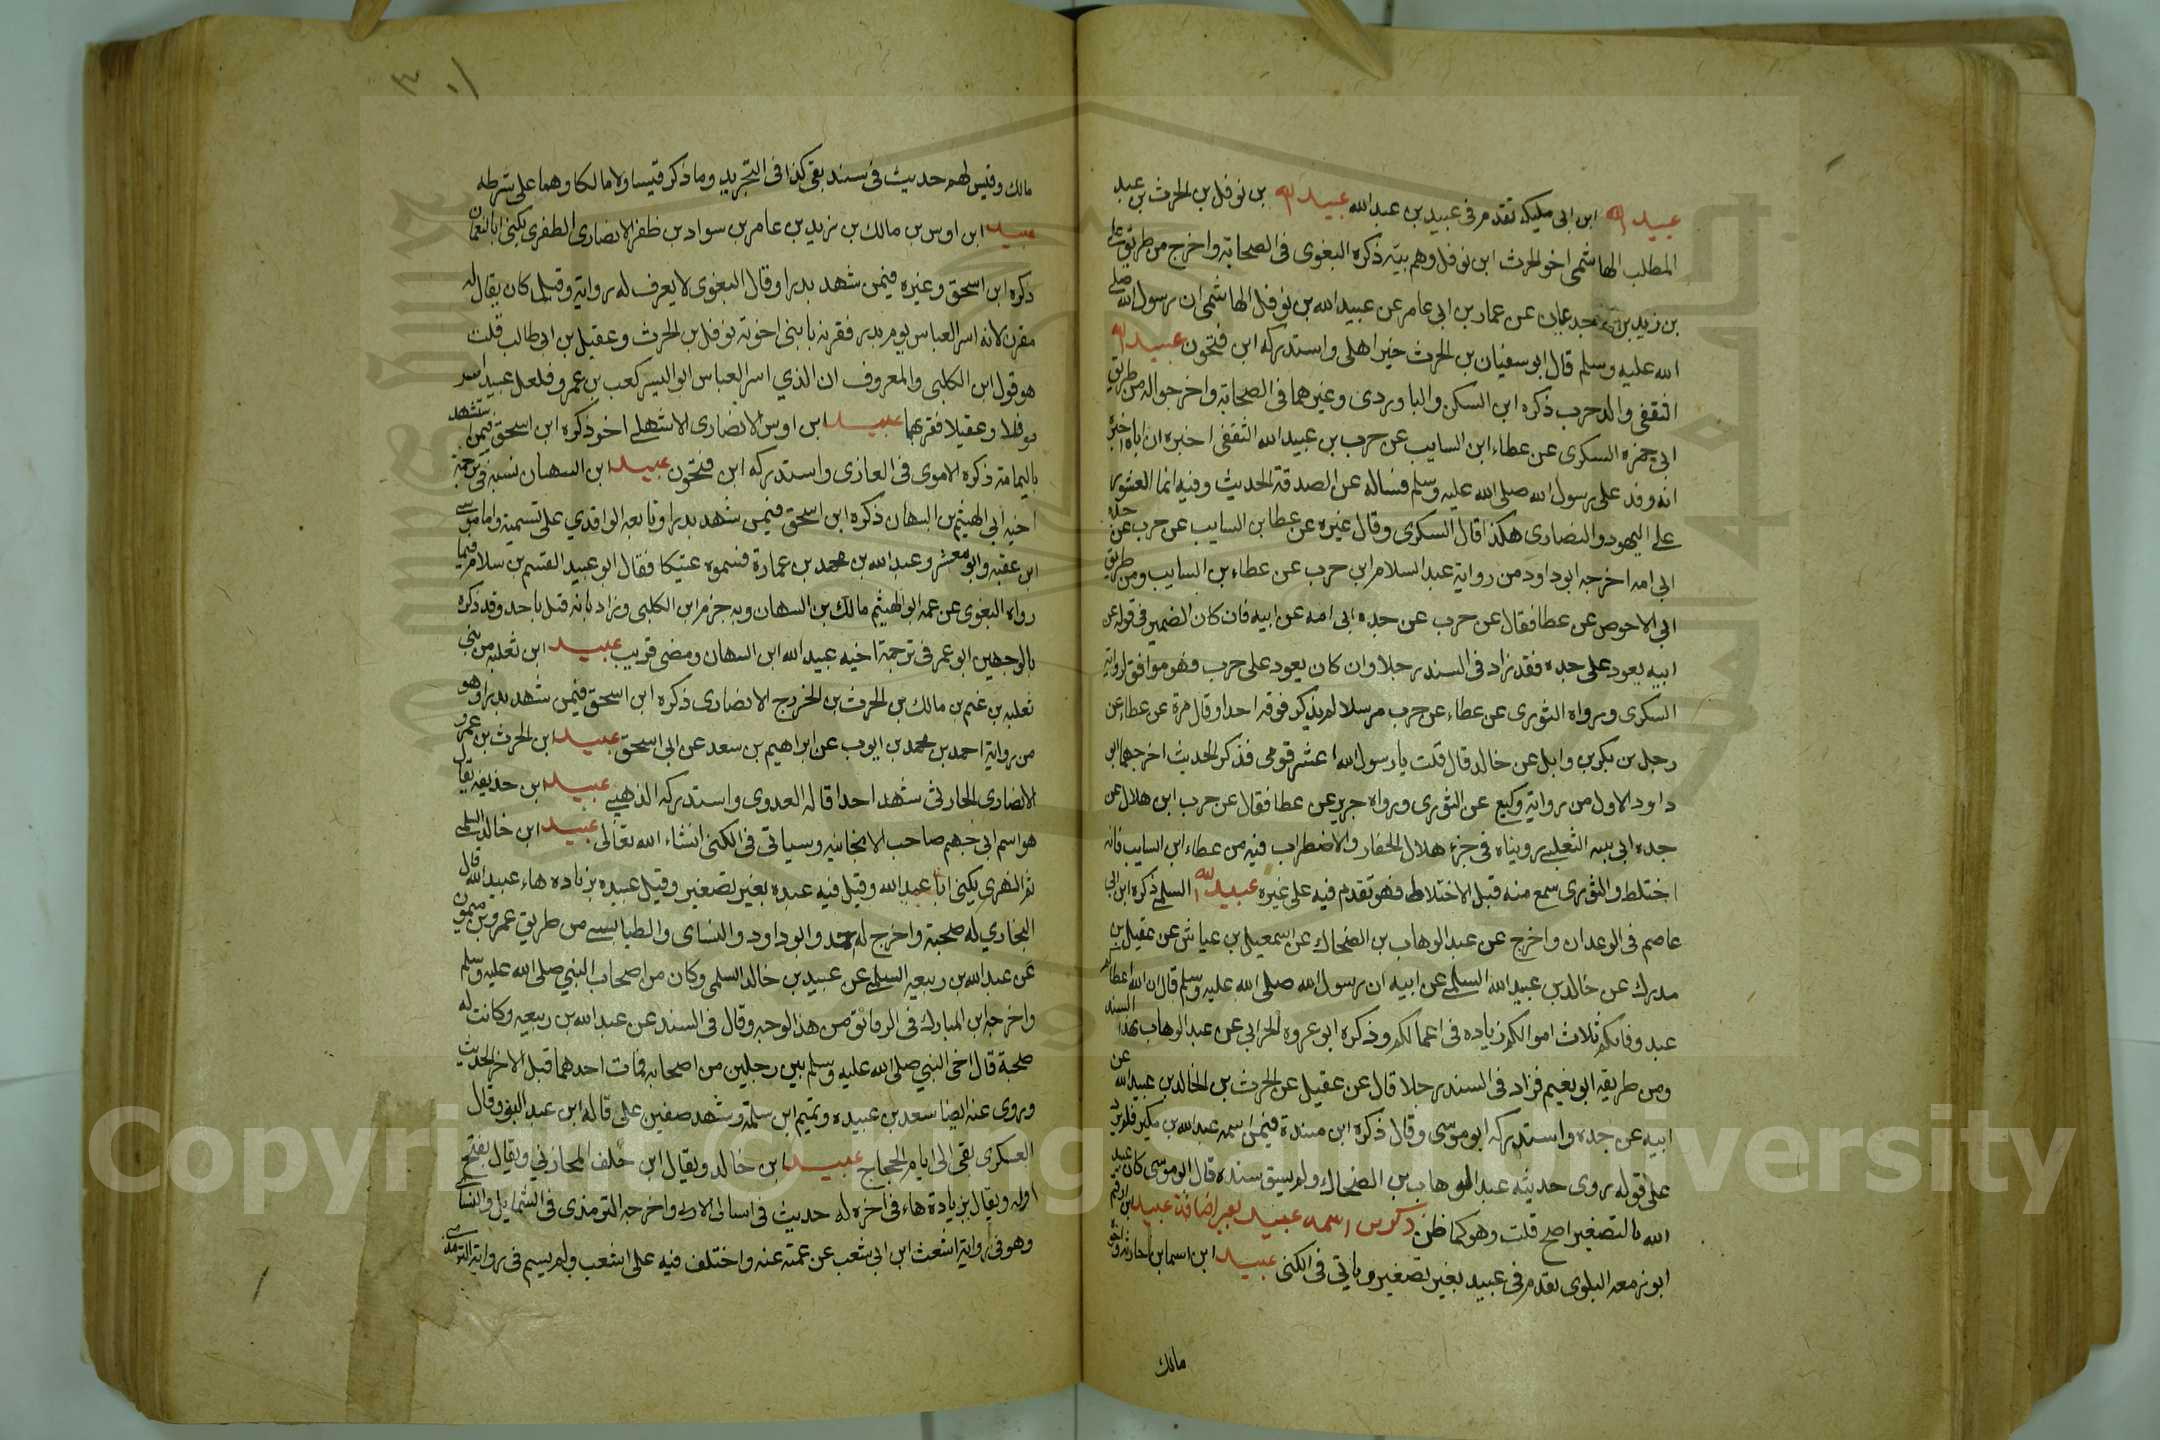 عبيد الله ابن ابى مليكه تقدم فى عبيد بن عبد الله عبيد الله بن نوفل بن الحرث بن عبد
المطلب الهاشمى اخو الحرث ابن نوفل وهم بيته ذكره البغوى فى الصحابة واخرج من طريق على
بن زيد بن جدعان عن عمار بن ابى عامر عن عبيد الله بن نوفل الهاشمى ان رسول الله صلى
الله عليه وسلم قال ابو سفيان بن الحرث خير اهلى واستدركه ابن فتحون عبيد الله
الثقفى والد حرب ذكره ابن السكن والباوردى وغيرهما فى الصحابة واخرجوا له من طريق
ابى حمزه السكرى عن عطاء ابن السايب عن حرب بن عبيد الله الثقفى اخبره ان اباه اخبره
انه وفد على رسول الله صلى الله عليه وسلم فساله عن الصدقة الحديث وفيه انما العشور
على اليهود والنصارى هكذا قال السكرى وقال غيره عن عطا بن السايب عن حرب عن جده
ابى امه اخرجه ابو داود من رواية عبد السلام ابن حرب عن عطاء بن السايب ومن طريق
ابى الاحوص عن عطا فقال عن حرب عن جده ابى امه عن ابيه فان كان الضمير فى قوله عن
ابيه يعود على جده فقد زاد فى السند رجلا وان كان يعود على حرب فهو موافق لرواية
السكرى ورواه الثورى عن عطاء عن حرب مرسلا لم يذكر فوقه احدا وقال مرة عن عطاء عن
رجل من بكر بن وايل عن خاله قال قلت يا رسول الله اعشر قومى فذكر الحديث اخرجهما ابو
داود الاول من رواية وكيع عن الثورى ورواه جرير عن عطا فقال عن حرب ابن هلال عن
جده ابى امه الثعلبى رويناه فى جزء هلال الحفار والاضطراب فيه من عطاء ابن السايب فانه
اختلط والثورى سمع منه قبل الاختلاط فهو تقدم فيه على غيره عبيد الله السلمى ذكره ابن ابى
عاصم فى الوحدان واخرج عن عبد الوهاب بن الضحاك عن اسمعيل بن عياش عن عقيل بن
مدرك عن خالد بن عبيد الله السلمى عن ابيه ان رسول الله صلى الله عليه وسلم قال ان الله اعطاكم
عند وفاتكم ثلاث اموالكم زياده فى اعمالكم وذكره ابو عروه الحرانى عن عبد الوهاب بهذا السند
ومن طريقه ابو نعيم فزاد فى السند رجلا قال عن عقيل عن الحرث بن الخالد بن عبيد الله عن
ابيه عن جده واستدركه ابو موسى وقال ذكره ابن مندة فيمن اسمه عبد الله بن مكبر فلم يزد
على قوله روى حديثه عبد الوهاب بن الضحاك ولم يسق سنده قال ابو موسى كان عبيد
الله بالتصغير اصح قلت وهو كما ظن ذكر من اسمه عبيد بغير اضافة عبيد بن ارقم
ابو زمعه البلوى تقدم فى عبيد بغير تصغير وياتى فى الكنى عبيد ابن اسما بن حارثه
مالك
مالك وقيس لهم حديث فى سند بقى كذا فى التجريد وما ذكر قيسا ولا مالكا وهما على شرطه
عبيد ابن اوس بن مالك بن زيد بن عامر بن سواد بن ظفر الانصارى الظفرى يكنى ابا النعمان
ذكره ابن اسحق وغيره فيمن شهد بدرا وقال البغوى لا يعرف له رواية وقيل كان يقال له
مقرن لانه اسر العباس يوم بدر فقرنه بابنى اخوته نوفل بن الحرث وعقيل بن ابى طالب قلت
هو قول ابن الكلبى والمعروف ان الذي اسر العباس ابو اليسر كعب بن عمرو فلعل عبيدا اسر
نوفلا وعقيلا فقرنهما عبيد ابن اوس الانصارى الاشهلى اخو ذكره ابن اسحق فيمن استشهد
باليمامة ذكره الاموى فى المغازى واستدركه ابن فتحون عبيد ابن التيهان نسبه فى ترجمة
اخيه ابى الهيثم بن التيهان ذكره ابن اسحق فيمن شهد بدرا وتابعه الواقدي على تسميته واما موسى
ابن عقبه وابو معشر وعبد الله بن محمد بن عمارة فسموه عتيكا فقال ابو عبيد القسم بن سلام فيما
رواه البغوى عن عمه ابو الهيثم مالك بن التيهان وبه جزم ابن الكلبى وزاد بانه قتل باحد وقد ذكره
بالوجهين ابو عمر فى ترجمة اخيه عبيد الله ابن التيهان ومضى قريب عبيد ابن ثعلبه من بنى
ثعلبه بن غنم بن مالك بن الحرث بن الخزرج الانصارى ذكره ابن اسحق فيمن شهد بدرا وهو
من رواية احمد بن محمد بن ايوب عن ابراهيم بن سعد عن ابى اسحق عبيد ابن الحرث بن عمرو
الانصارى الحارثى شهد احدا قاله العدوى واستدركه الذهبى عبيد ابن حذيفه يقال
هو اسم ابى جهم صاحب الانبجانيه وسياتى فى الكنى انشاء الله تعالى عبيد ابن خالد السلمى
ثم البهزى يكنى ابا عبد الله وقيل فيه عبده بغير تصغير وقيل عبيده بزياده هاء عبيد الله قال
البخاري له صحبة واخرج له احمد وابو داود والنساى والطيالسى من طريق عمرو بن ميمون
عن عبد الله بن ربيعه السلمى عن عبيد بن خالد السلمى وكان من اصحاب النبي صلى الله عليه وسلم
واخرجه ابن المبارك فى الرقائق من هذا الوجه وقال فى السند عن عبد الله بن ربيعه وكانت له
صحبة قال اخى النبي صلى الله عليه وسلم بين رجلين من اصحابه فمات احدهما قبل الاخر الحديث
وروى عنه ايضا سعد بن عبيده وتميم ابن سلمة وشهد صفين على قاله ابن عبد البر وقال
العسكرى بقى الى ايام الحجاج عبيد ابن خالد ويقال ابن خلف المحاربي ويقال بفتح
اوله ويقال بزيادة هاء فى آخره له حديث فى اسبال الازار واخرجه الترمذى فى الشمايل والنساى
وهو فى رواية اشعث ابن ابى شعب عن عمته عنه واختلف فيه على اشعب ولم يسم فى رواية الترمذى
Copyright © King Saud University